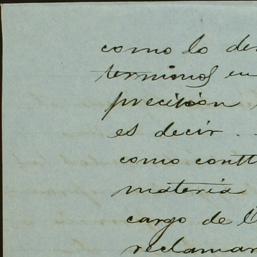 como lo de
terminos en
precision
es decir
como contt
materia
cargo de
reclamar